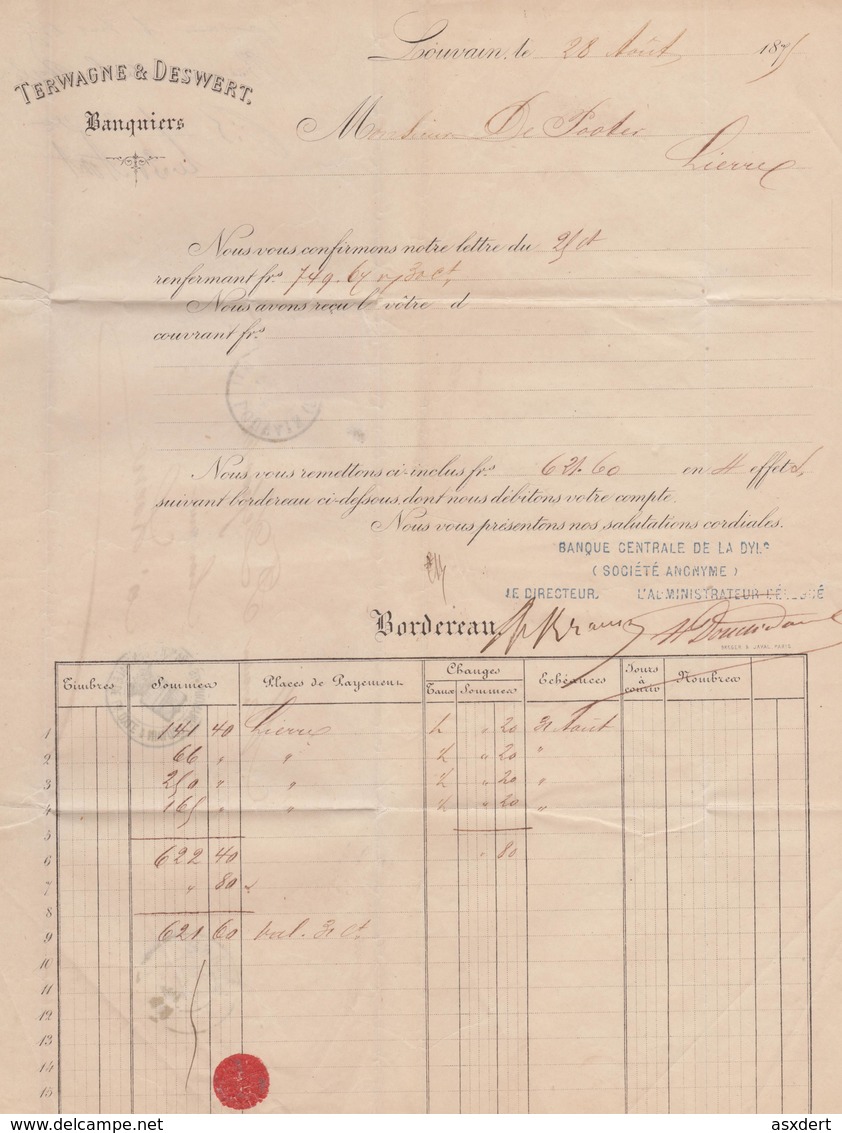 Louvain, le 28 Août 1875
TERWAGNE & DESWERT,
Banquiers
Monsieur De Pooter
Lierre
Nous vous confirmons notre lettre du 25 Ct
renfermant frs 749.67 v/30 Ct,
Nous avons reçu l vôtre d
couvrant frs
Nous vous remettons ci-inclus frs 621.60 en 4 effets,
suivant bordereau ci-dessous, dont nous débitons votre compte.
Nous vous présentons nos salutations cordiales.
BANQUE CENTRALE DE LA DYLE
(SOCIÉTÉ ANONYME)
LE DIRECTEUR, L'ADMINISTRATEUR DÉLÉGUÉ
Bordereau
Timbres Sommes Places de Payement Changes Echéances Jours à courir Nombres
Taux Sommes
1 141 40 Lierre ½ " 20 31 Août
2 66 " " ½ " 20 "
3 250 " " ½ " 20 "
4 165 " " ½ " 20 "
5
6 622 40 " 80
7 " 80
8
9 621 60 val. 31 Ct.
10
11
12
13
14
15
Delcampe.net
asxdert